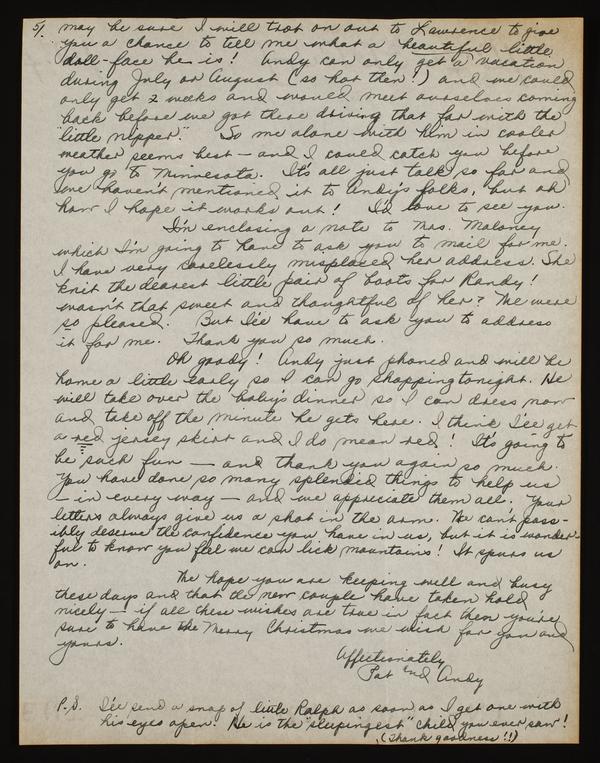 5/. may be sure I will trot on out to Lawrence to give
you a chance to tell me what a beautiful little
doll-face he is! Andy can only get a vacation
during July or August (so hot then!) and we could
only get 2 weeks and would meet ourselves coming
back before we got there driving that far with the
"little nipper." So me alone with him in cooler
weather seems best – and I could catch you before
you go to Minnesota. It's all just talk so far and
we haven't mentioned it to Andy's folks, but oh
how I hope it works out! I'd love to see you.
I'm enclosing a note to Mrs. Maloney
which I'm going to have to ask you to mail for me.
I have very carelessly misplaced her address. She
knit the dearest little pair of boots for Randy!
Wasn't that sweet and thoughtful of her? We were
so pleased. But I'll have to ask you to address
it for me. Thank you so much.
Oh goody! Andy just phoned and will be
home a little early so I can go shopping tonight. He
will take over the baby's dinner so I can dress now
and take off the minute he gets here. I think I'll get
a red jersey skirt and I do mean red! It's going to
be such fun — and thank you again so much.
You have done so many splendid things to help us
– in every way – and we appreciate them all. Your
letters always give us a shot in the arm. We can't poss-
ibly deserve the confidence you have in us, but it is wonder-
ful to know you feel we can lick mountains! It spurs us
on.
We hope you are keeping well and busy
these days and that the new couple have taken hold
nicely – if all these wishes are true in fact then you're
sure to have the Merry Christmas we wish for you and
yours.
Affectionately
Pat and Andy
P.S. I'll send a snap of little Ralph as soon as I get one with
his eyes open. He is the "sleepingest" child you ever saw!
(Thank goodness!!)